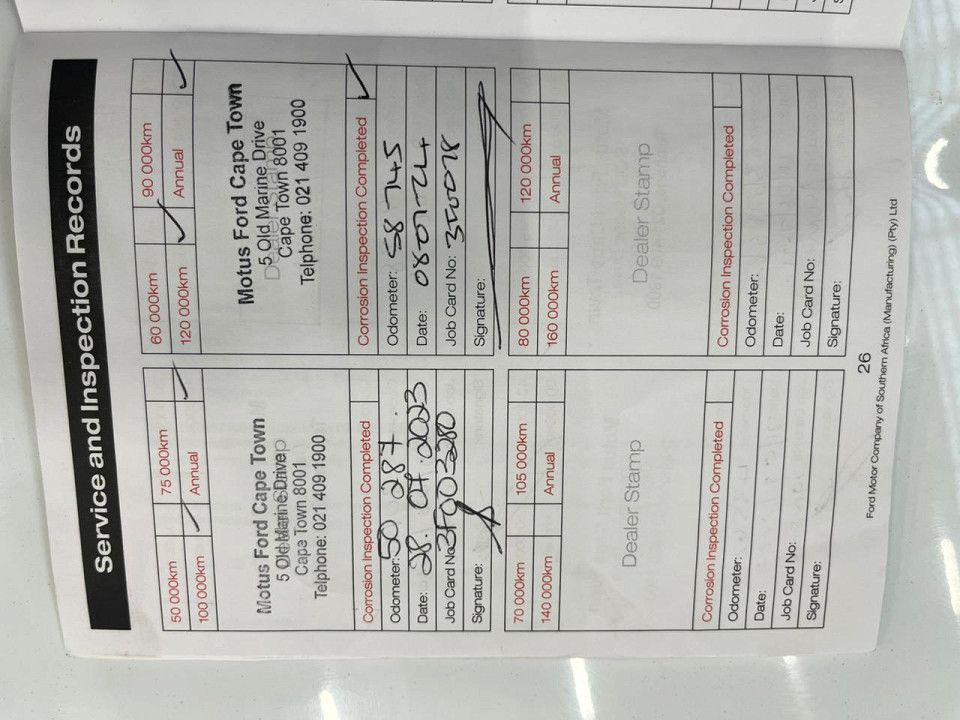 Service and Inspection Records
50 000km 75 000km
100 000km Annual
Motus Ford Cape Town
5 Old Marine Drive
Cape Town 8001
Telphone: 021 409 1900
Corrosion Inspection Completed
Odometer: 50 287.
Date: 28.07.2023
Job Card No:
Signature:
60 000km 90 000km
120 000km Annual
Motus Ford Cape Town
5 Old Marine Drive
Cape Town 8001
Telphone: 021 409 1900
Corrosion Inspection Completed
Odometer: 58 745
Date: 08-07-24
Job Card No: 350078
Signature:
70 000km 105 000km
140 000km Annual
Dealer Stamp
Corrosion Inspection Completed
Odometer:
Date:
Job Card No:
Signature:
80 000km 120 000km
160 000km Annual
Dealer Stamp
Corrosion Inspection Completed
Odometer:
Date:
Job Card No:
Signature:
26
Ford Motor Company of Southern Africa (Manufacturing) (Pty) Ltd